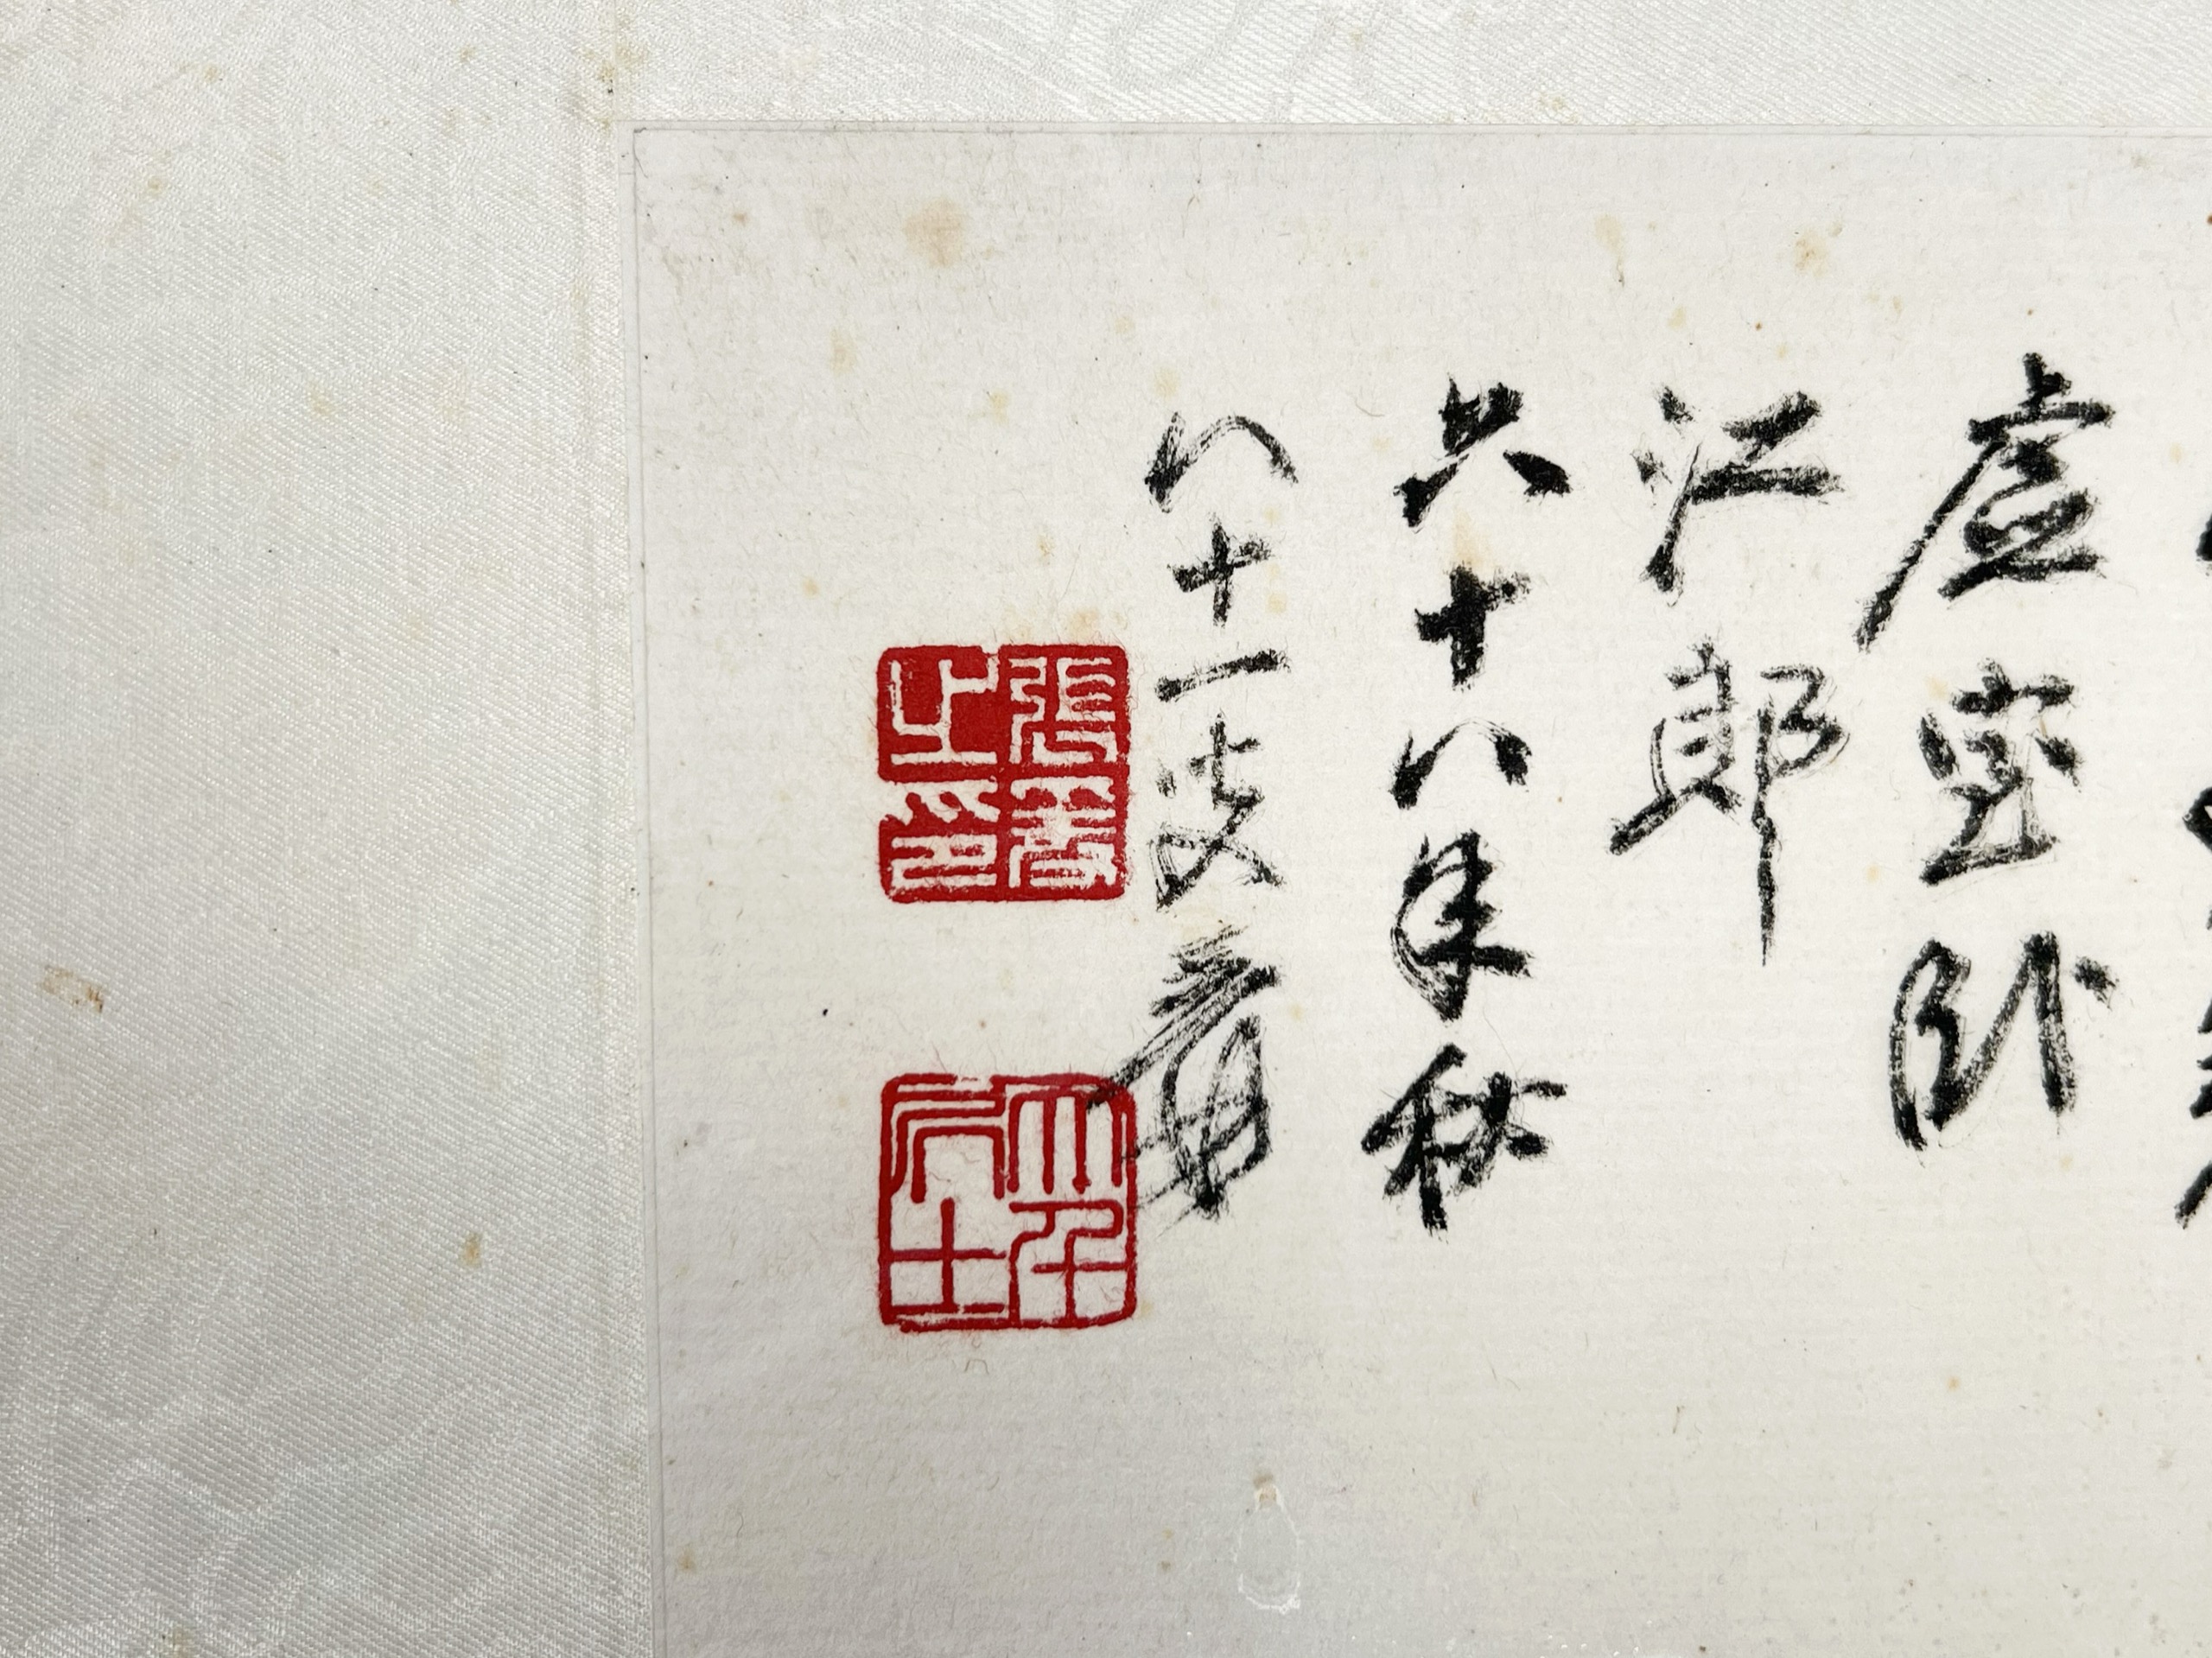 虛室卧
江郎
六十八年秋
八十一叟爰
張爰之印
大千居士